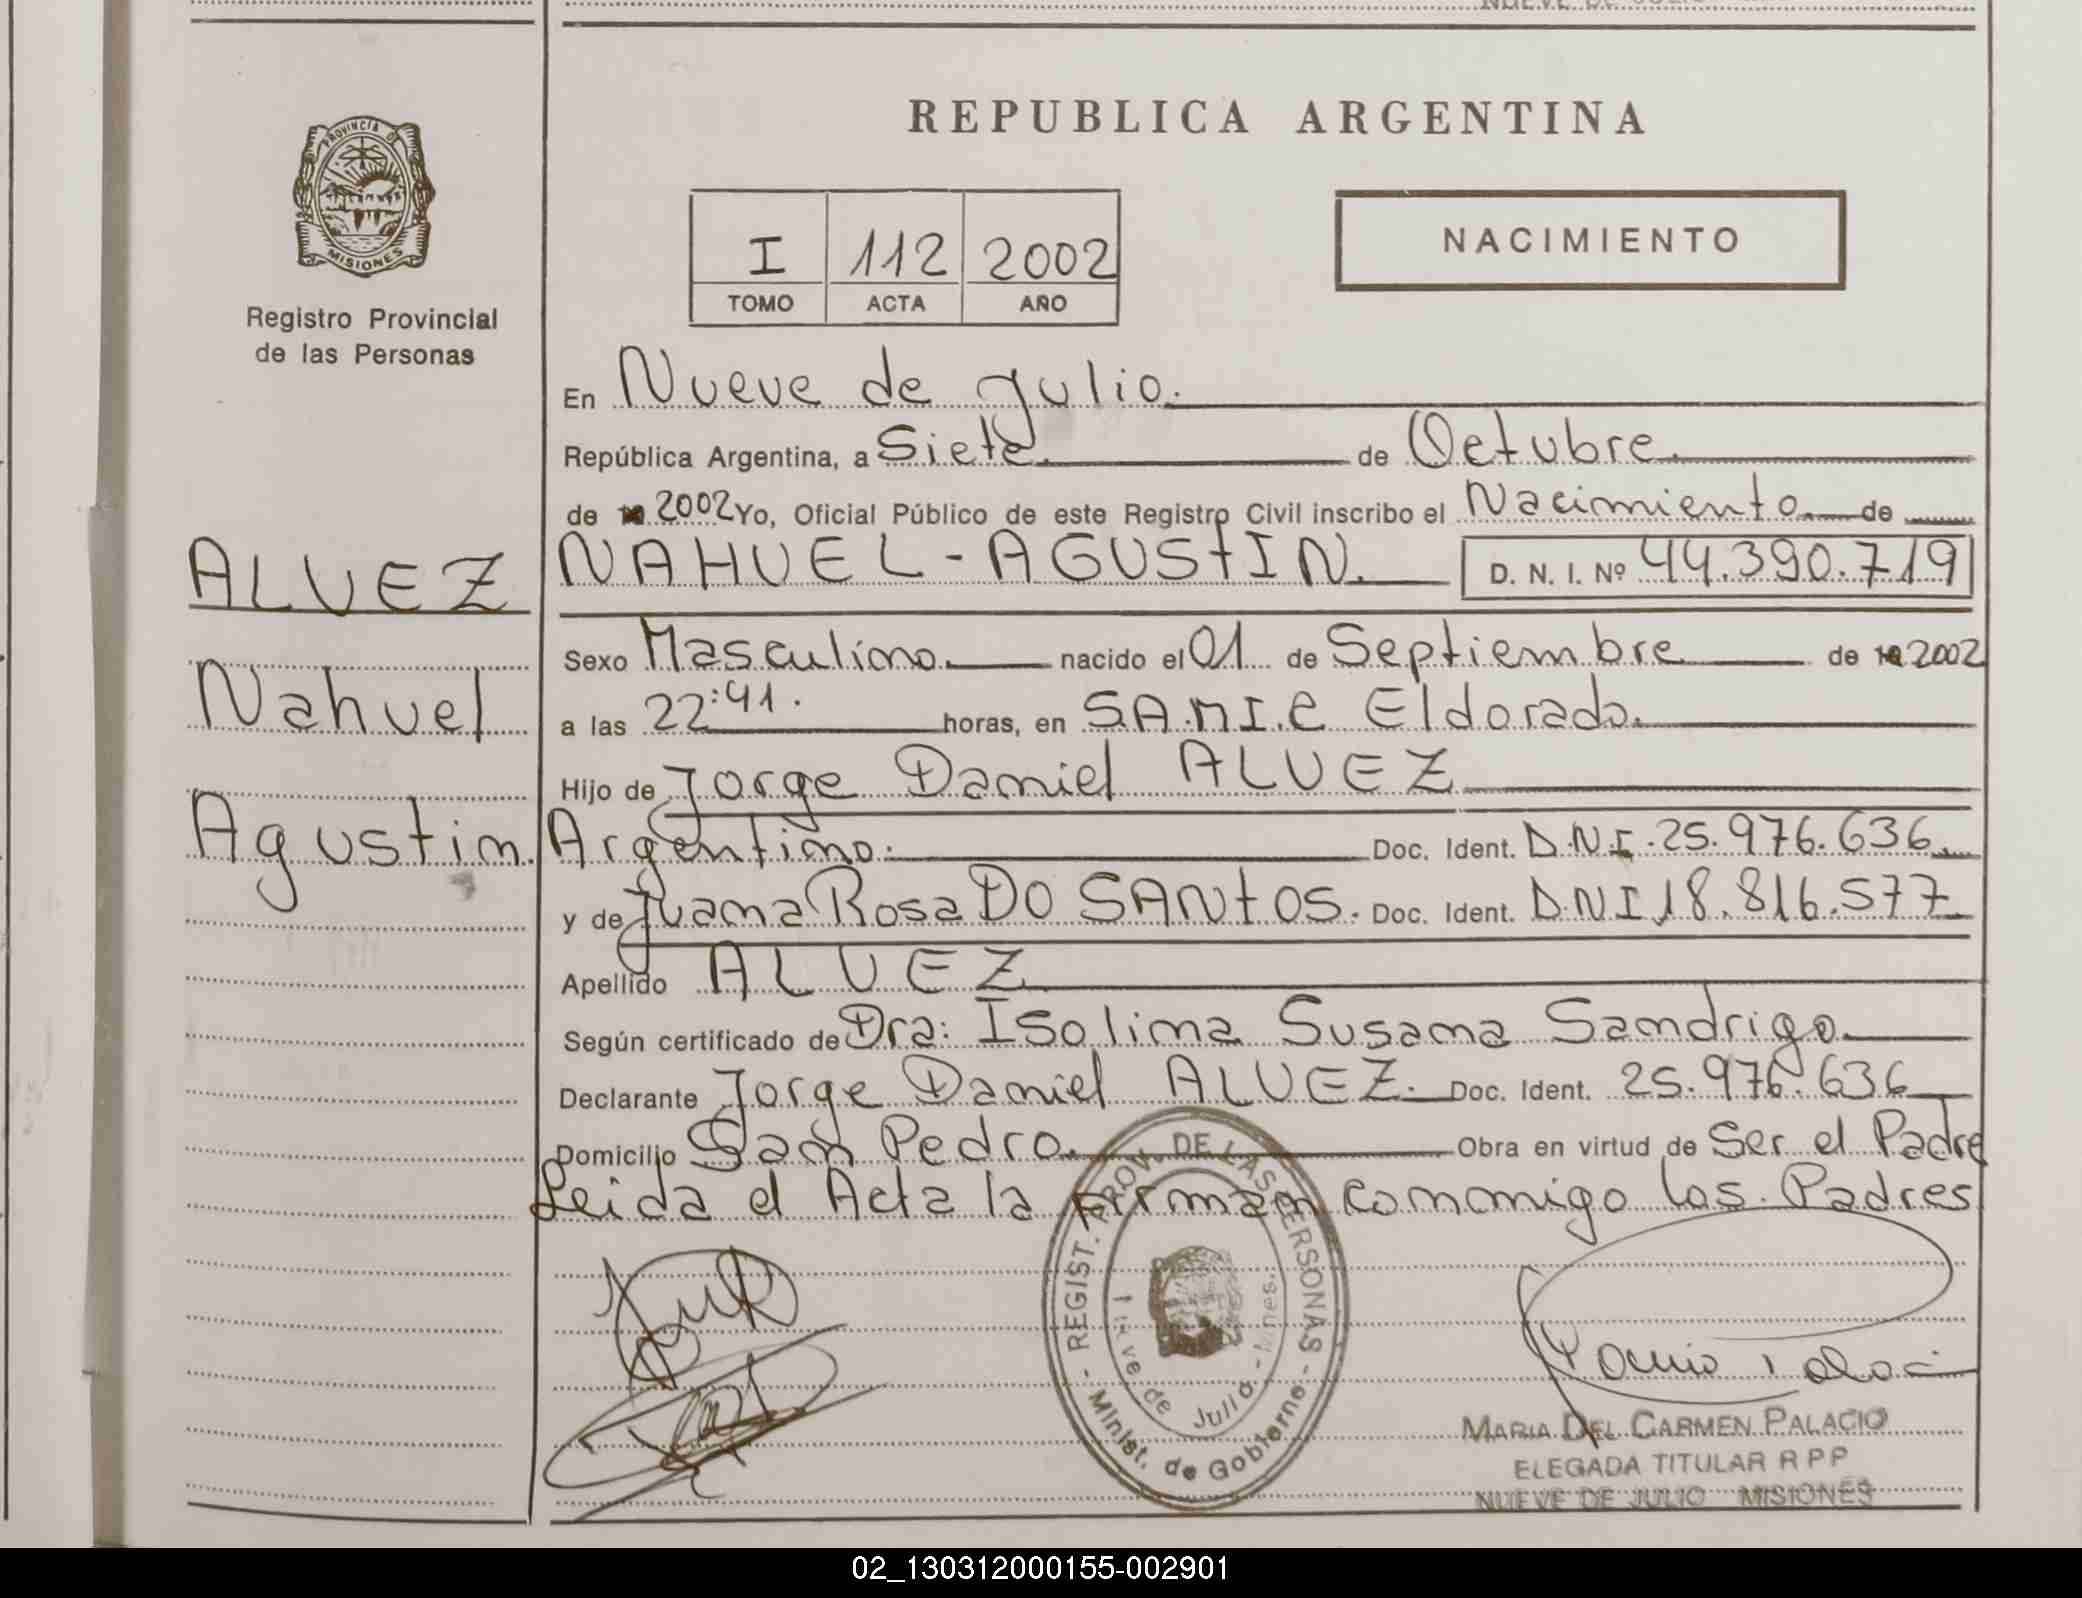 NUEVE DE JULIO
PROVINCIA DE
MISIONES
Registro Provincial
de las Personas
REPUBLICA ARGENTINA
I 112 2002
TOMO ACTA AÑO
NACIMIENTO
En Nueve de Julio.
República Argentina, a Siete. de Octubre.
de 2002 Yo, Oficial Público de este Registro Civil inscribo el Nacimiento de
ALVEZ
NAHUEL-AGUSTIN. D. N. I. Nº 44.390.719
Sexo Masculino. nacido el 01 de Septiembre de 2002
Nahuel
a las 22:41. horas, en S.A.M.I.C Eldorado.
Hijo de Jorge Daniel ALVEZ
Agustin.
Argentino. Doc. Ident. D.N.I. 25.976.636
y de Juana Rosa DO SANTOS. Doc. Ident. D.N.I 18.816.577
Apellido ALVEZ
Según certificado de Dra: Isolina Susana Sandrigo
Declarante Jorge Daniel ALVEZ. Doc. Ident. 25.976.636
Domicilio San Pedro. Obra en virtud de Ser el Padre
Leida el Acta la firman conmigo los Padres
REGIST. PROV. DE LAS PERSONAS
Nueve de Julio - Mnes.
- Minist. de Gobierno -
MARIA DEL CARMEN PALACIO
ELEGADA TITULAR R P P
NUEVE DE JULIO MISIONES
02_130312000155-002901